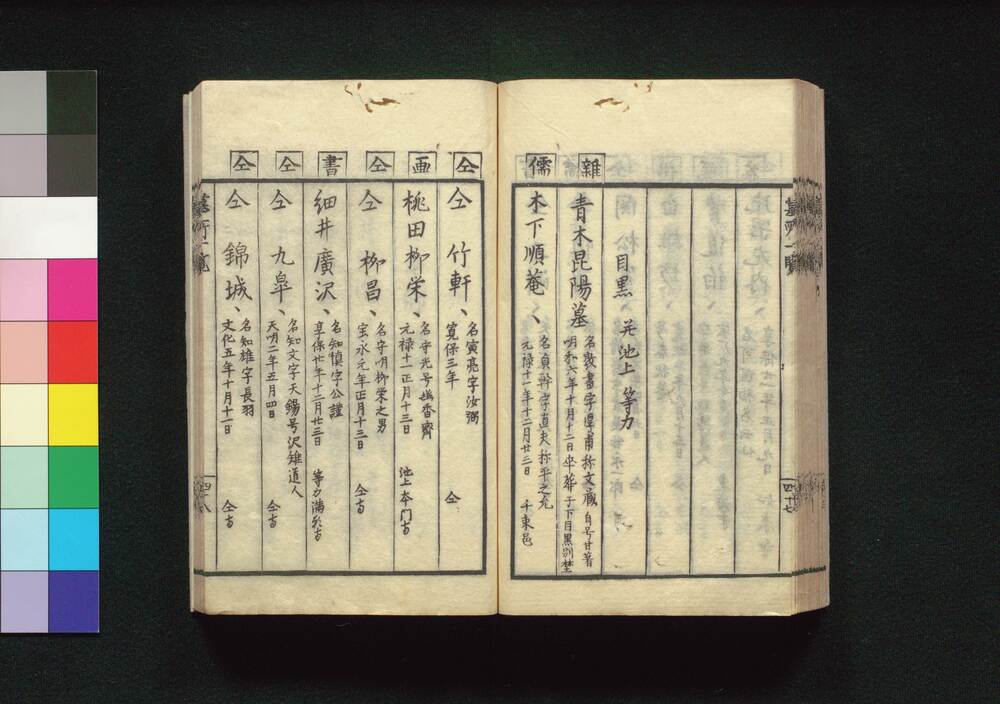 目黒 并池上 等力
雜
青木昆陽墓
名敦書字厚甫称文蔵 自号甘薯
明和六年十月十二日卒葬于下目黒別埜
儒
木下順菴、
名貞幹字直夫称平之允
元禄十一年十二月廿三日 千束邑
四十七
仝
仝 竹軒、
名寅亮字汝弼
寛保三年 仝
画
桃田柳栄、
名守光号幽香齋
元禄十一正月十三日 池上本門寺
仝
仝 柳昌、
名守明柳栄之男
宝永元年正月十三日 仝寺
書
細井廣沢、
名知慎字公謹
享保廿年十二月廿三日 等力満願寺
仝
仝 九皐、
名知文字天錫号沢雉道人
天明二年五月四日 仝寺
仝
仝 錦城、
名知雄字長羽
文化五年十月十一日 仝寺
墓所一覧
四十八